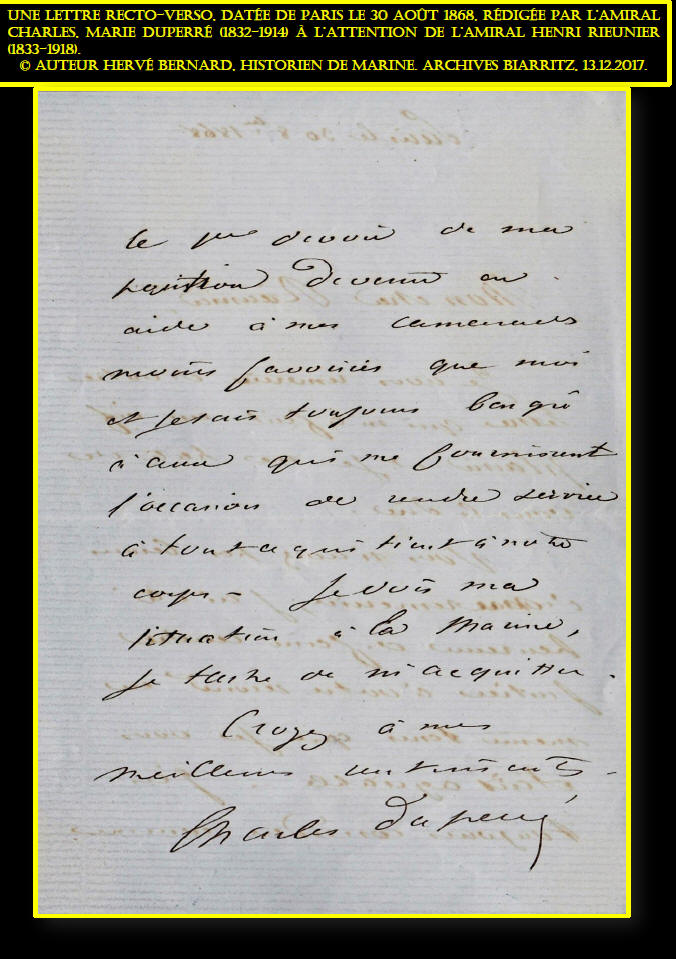 UNE LETTRE RECTO-VERSO, DATÉE DE PARIS LE 30 AOÛT 1868, RÉDIGÉE PAR L'AMIRAL
CHARLES, MARIE DUPERRÉ (1832-1914) À L'ATTENTION DE L'AMIRAL HENRI RIEUNIER
(1833-1918).
© AUTEUR HERVÉ BERNARD, HISTORIEN DE MARINE. ARCHIVES BIARRITZ, 13.12.2017.
le 1er devoir de ma
position devenir en
aide à mes camarades
moins favorisés que moi
et je sais toujours bon gré
à ceux qui me fournissent
l'occasion de rendre service
à tout ce qui tient à notre
corps - Je dois ma
situation à la Marine,
Je tache de m'acquitter.
Croyez à mes
meilleurs sentiments.
Charles Duperré